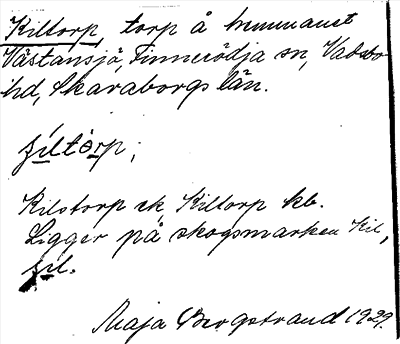 Kiltorp, torp å hemmanet
Västansjö, Finnerödja sn, Vadsbo
hd, Skaraborgs län.
ʃìltòrp;
Kilstorp ek, Kiltorp kb.
Ligger på skogsmarken Kil,
ʃìl.
Maja Bergstrand 1929.